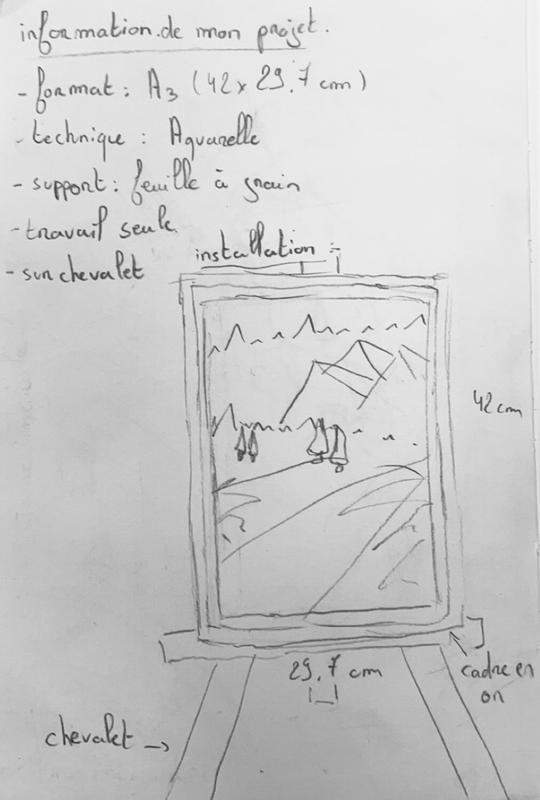 information de mon projet.
- format : A3 (42 x 29.7 cm)
- technique : Aquarelle
- support : feuille à grain
- travail seule
- sur chevalet
installation :
42 cm
29,7 cm
cadre en
or
chevalet →